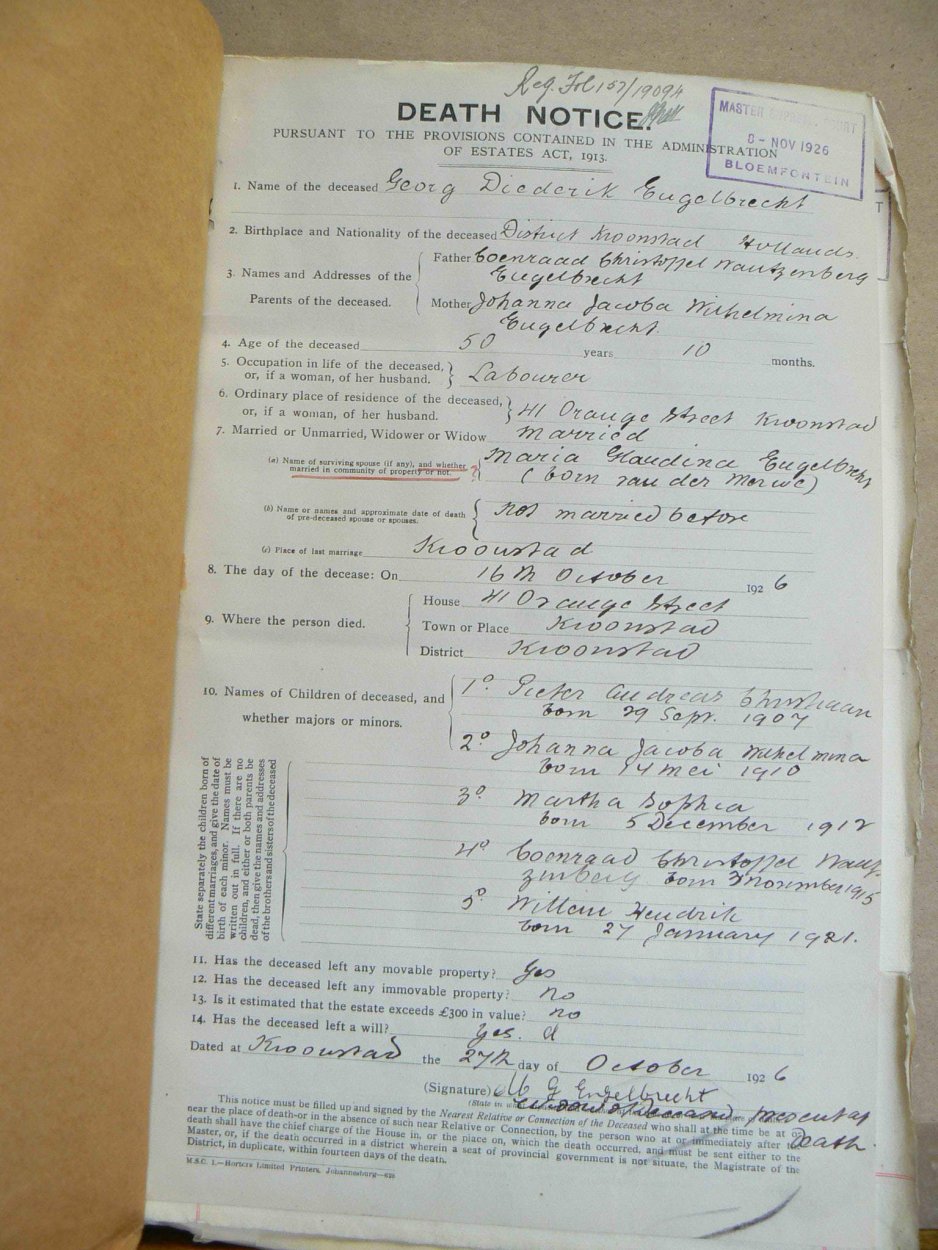 Reg. Fol 157/1909A
DEATH NOTICE.
MASTER SUPREME COURT
8 - NOV 1926
BLOEMFONTEIN
PURSUANT TO THE PROVISIONS CONTAINED IN THE ADMINISTRATION
OF ESTATES ACT, 1913.
1. Name of the deceased Georg Diederik Engelbrecht
2. Birthplace and Nationality of the deceased District Kroonstad Hollands.
3. Names and Addresses of the Parents of the deceased.
Father Coenraad Christoffel Nautzenberg
Engelbrecht
Mother Johanna Jacoba Wilhelmina
Engelbrecht
4. Age of the deceased 50 years 10 months.
5. Occupation in life of the deceased,
or, if a woman, of her husband. Labourer
6. Ordinary place of residence of the deceased,
or, if a woman, of her husband. 41 Orange Street Kroonstad
7. Married or Unmarried, Widower or Widow married
(a) Name of surviving spouse (if any), and whether
married in community of property or not. ? Maria Glaudina Engelbrecht
(born van der Merwe)
(b) Name or names and approximate date of death
of pre-deceased spouse or spouses. not married before
(c) Place of last marriage Kroonstad
8. The day of the decease: On 16th October 1926
9. Where the person died.
House 41 Orange Street
Town or Place Kroonstad
District Kroonstad
10. Names of Children of deceased, and
whether majors or minors.
1º Pieter Andreas Christiaan
born 29 Sept. 1907
2º Johanna Jacoba Wilhelmina
born 14 Mei 1910
State separately the children born of
different marriages, and give the date of
birth of each minor. Names must be
written out in full. If there are no
children, and either or both parents be
dead, then give the names and addresses
of the brothers and sisters of the deceased
3º Martha Sophia
born 5 December 1912
4º Coenraad Christoffel Nautz
zenberg born 3 November 1915
5º Willem Hendrik
born 27 January 1921.
11. Has the deceased left any movable property? Yes
12. Has the deceased left any immovable property? no
13. Is it estimated that the estate exceeds £300 in value? no
14. Has the deceased left a will? Yes. d
Dated at Kroonstad the 27th day of October 1926
(Signature) M G Engelbrecht
Widow of Deceased present at
Death.
This notice must be filled up and signed by the Nearest Relative or Connection of the Deceased who shall at the time be at or
near the place of death—or in the absence of such near Relative or Connection, by the person who at or immediately after the
death shall have the chief charge of the House in, or the place on, which the death occurred, and must be sent either to the
Master, or, if the death occurred in a district wherein a seat of provincial government is not situate, the Magistrate of the
District, in duplicate, within fourteen days of the death.
M.S.C. 1.—Hortors Limited Printers, Johannesburg—